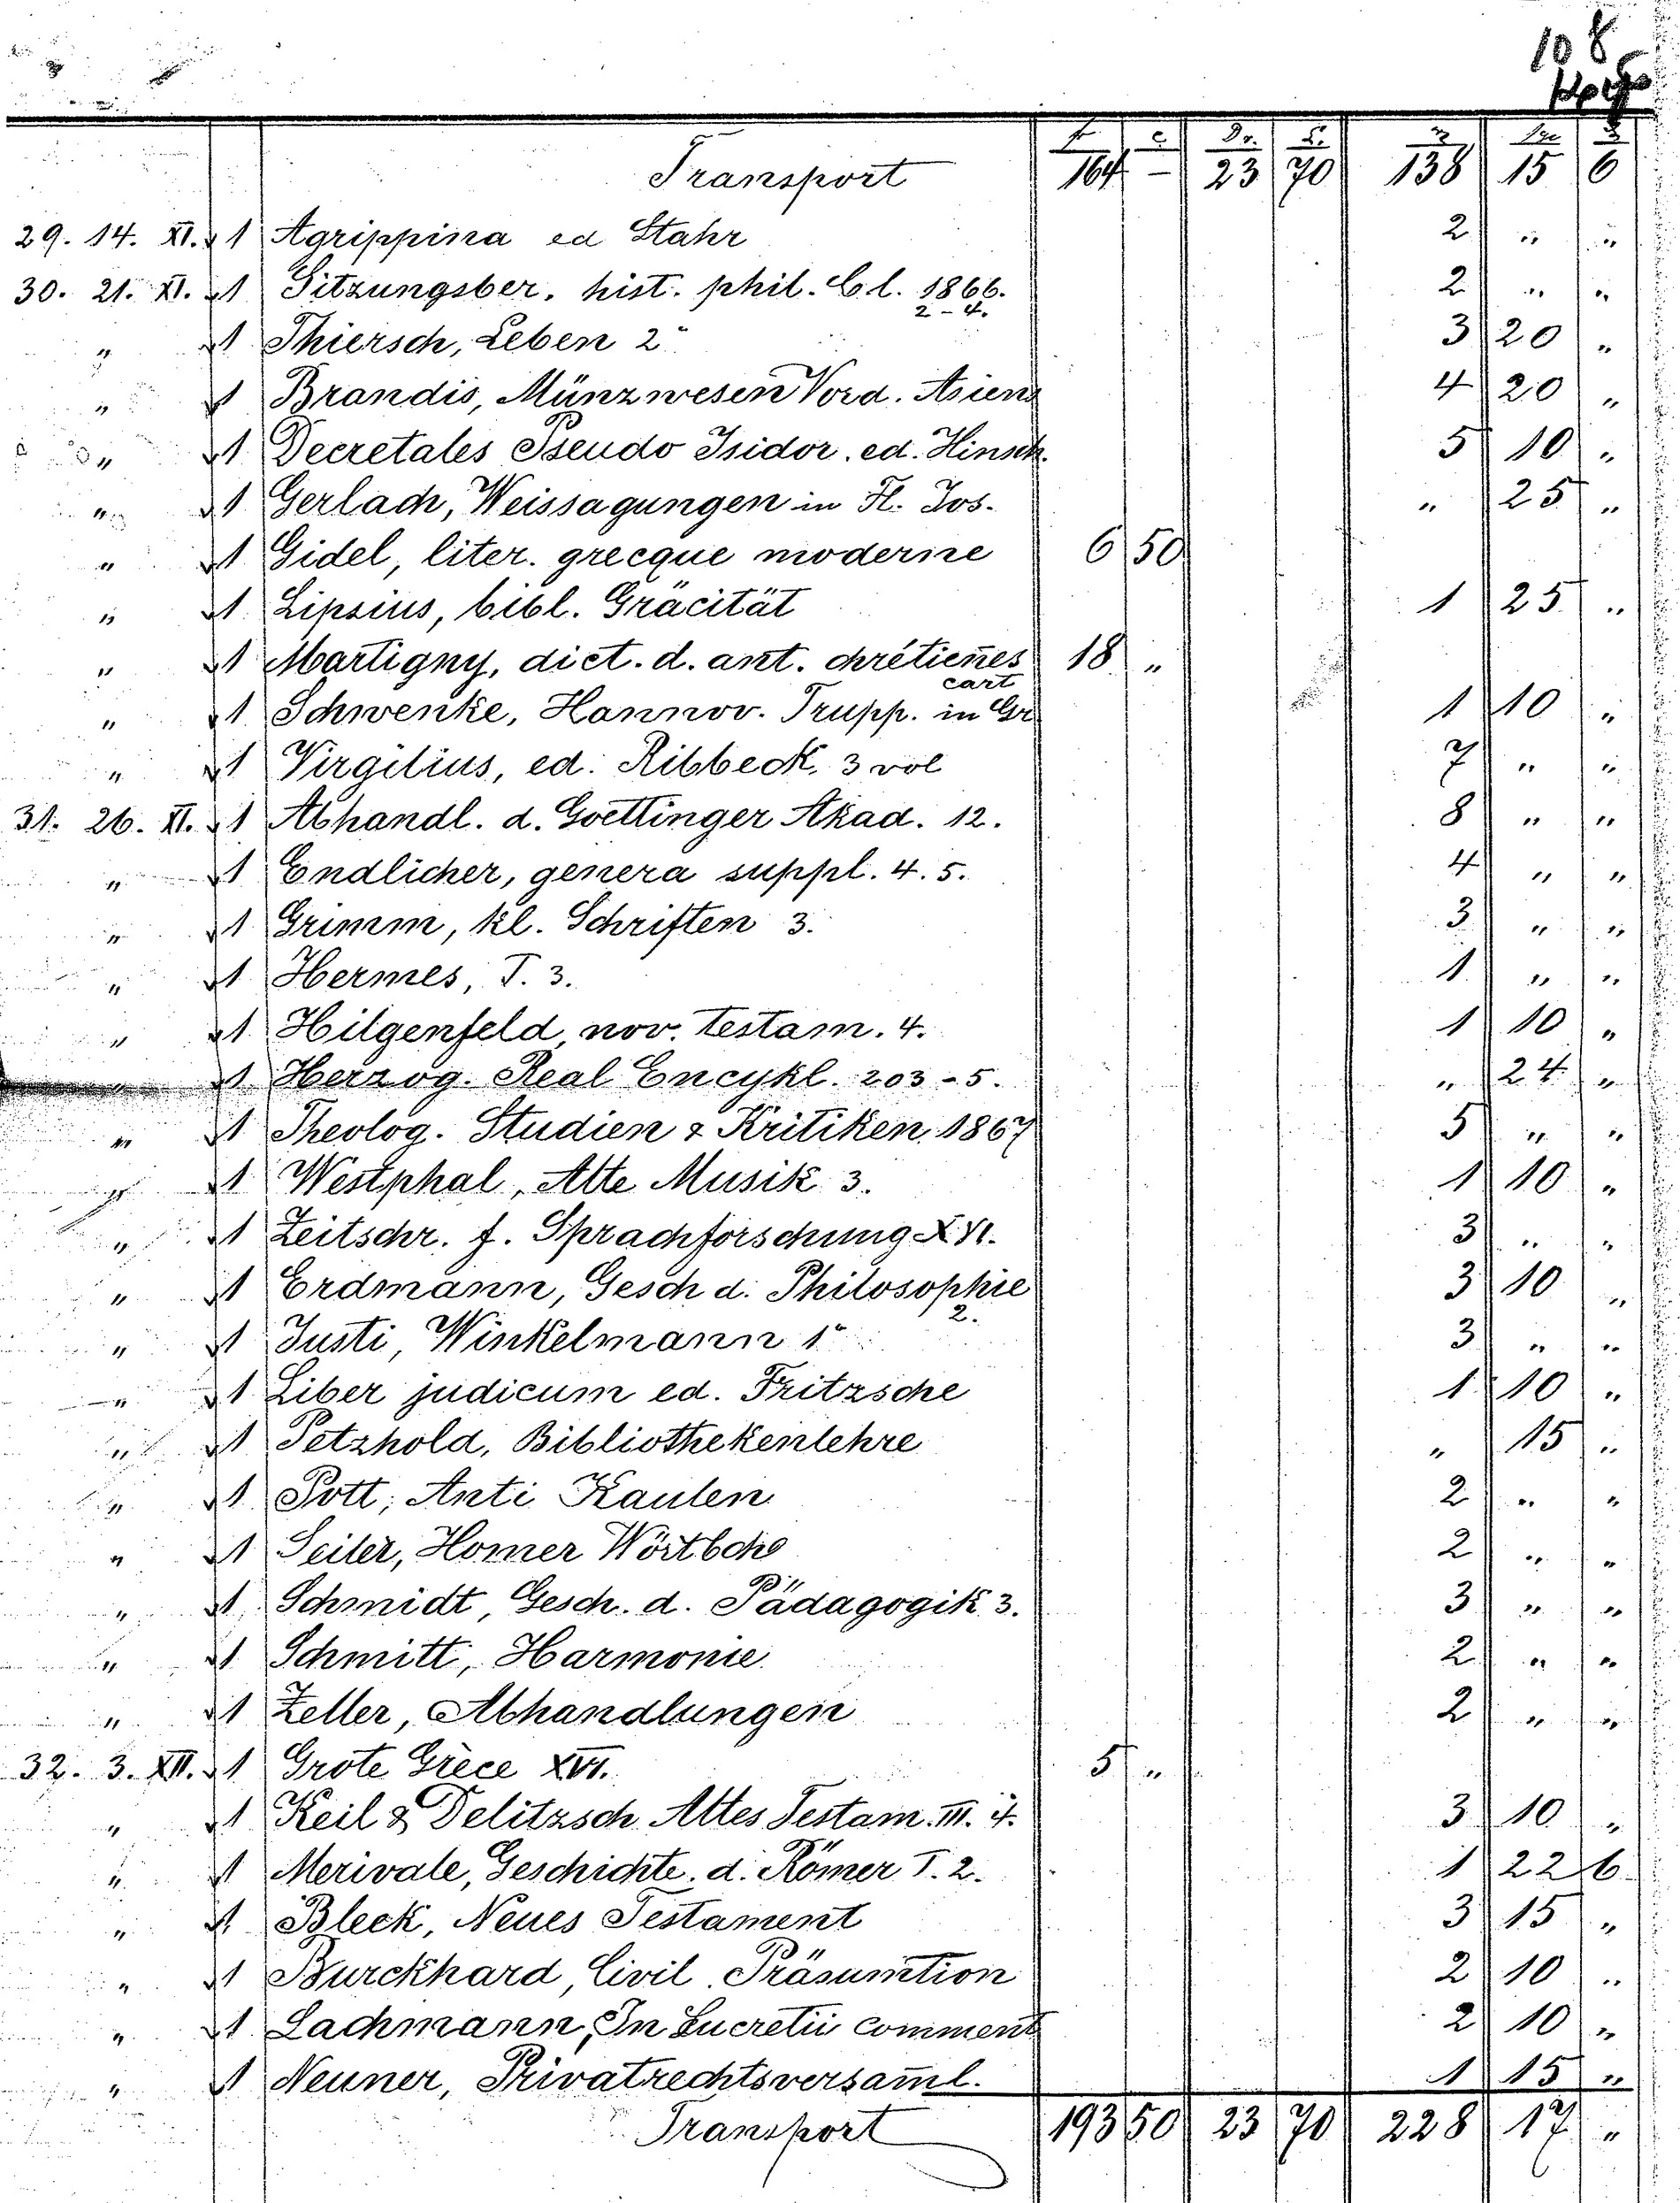 108
f. c. Dr. L. Sgr
Transport 164 — 23 70 138 15 6
29. 14. XI. 1 Agrippina ed Stahr 2 „ „
30. 21. XI. 1 Sitzungsber. hist. phil. Cl. 1866. 2 „ „
2-4.
„ 1 Thiersch, Leben 2" 3 20 „
„ 1 Brandis, Münzwesen Vord. Asiens 4 20 „
„ 1 Decretales Pseudo Isidor. ed. Hinsch. 5 10 „
„ 1 Gerlach, Weissagungen in Fl. Jos. „ 25 „
„ 1 Gidel, liter. grecque moderne 6 50
„ 1 Lipsius, bibl. Gräcität 1 25 „
„ 1 Martigny, dict. d. ant. chrétieñes 18 „
cart
„ 1 Schwenke, Hannov. Trupp. in Gr 1 10 „
„ 1 Virgilius, ed. Ribbeck. 3 vol 7 „ „
31. 26. XI. 1 Abhandl. d. Goettinger Akad. 12. 8 „ „
„ 1 Endlicher, genera suppl. 4. 5. 4 „ „
„ 1 Grimm, kl. Schriften 3. 3 „ „
„ 1 Hermes, T. 3. 1 „ „
„ 1 Hilgenfeld, nov. testam. 4. 1 10 „
„ 1 Herzog. Real Encykl. 203-5. „ 24 „
„ 1 Theolog. Studien & Kritiken. 1867 5 „ „
„ 1 Westphal, Alte Musik 3. 1 10 „
„ 1 Zeitschr. f. Sprachforschung XVI. 3 „ „
„ 1 Erdmann, Gesch d. Philosophie 3 10 „
2.
„ 1 Justi, Winkelmann 1" 3 „ „
„ 1 Liber judicum ed. Fritzsche 1 10 „
„ 1 Petzhold, Bibliothekenlehre „ 15 „
„ 1 Pott, Anti Kaulen 2 „ „
„ 1 Seiler, Homer Wörtbch 2 „ „
„ 1 Schmidt, Gesch. d. Pädagogik 3. 3 „ „
„ 1 Schmitt, Harmonie 2 „ „
„ 1 Zeller, Abhandlungen 2 „ „
32. 3. XII. 1 Grote Grèce XVI. 5 „
„ 1 Keil & Delitzsch Altes Testam. III. 4. 3 10 „
„ 1 Merivale, Geschichte. d. Römer T. 2. 1 22 6
„ 1 Bleek, Neues Testament 3 15 „
„ 1 Burckhard, Civil. Präsumtion 2 10 „
„ 1 Lachmann, In Lucretii comment 2 10 „
„ 1 Neuner, Privatrechtsversam̄l. 1 15 „
Transport 193 50 23 70 228 17 „